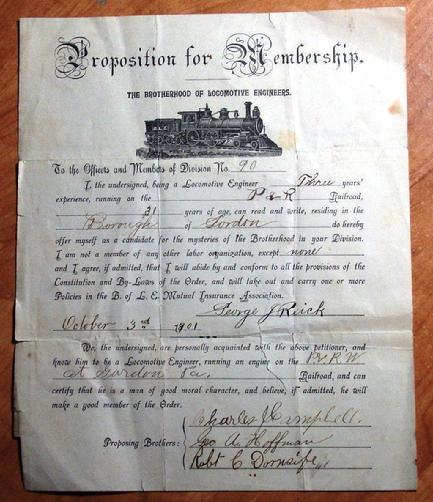 Proposition for Membership.
THE BROTHERHOOD OF LOCOMOTIVE ENGINEERS.
To the Officers and Members of Division No. 90
I, the undersigned, being a Locomotive Engineer Three years'
experience, running on the P & R Railroad,
31 years of age, can read and write, residing in the
Borough of Gordon do hereby
offer myself as a candidate for the mysteries of the Brotherhood in your Division.
I am not a member of any other labor organization, except none
and I agree, if admitted, that I will abide by and conform to all the provisions of the
Constitution and By-Laws of the Order, and will take out and carry one or more
Policies in the B. of L. E. Mutual Insurance Association.
George J
October 3rd 1901
We, the undersigned, are personally acquainted with the above petitioner, and
know him to be a Locomotive Engineer, running an engine on the
At Gordon Pa, Railroad, and can
certify that he is a man of good moral character, and believe, if admitted, he will
make a good member of the Order.
Charles J Campbell.
Proposing Brothers: Geo A. Hoffman
Robt C